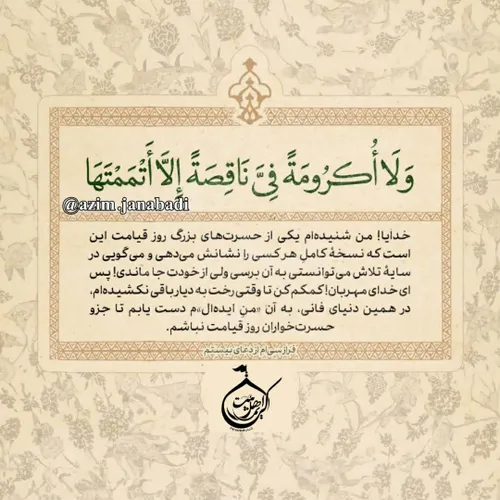 وَلَا أُكْرُومَةً فِيَّ نَاقِصَةً إِلَّا أَتْمَمْتَهَا
@azim.janabadi
خدایا! من شنیده‌ام یکی از حسرت‌های بزرگ روز قیامت این
است که نسخهٔ کامل هر کسی را نشانش می‌دهی و می‌گویی در
سایهٔ تلاش می‌توانستی به آن برسی ولی از خودت جا ماندی! پس
ای خدای مهربان! کمکم کن تا وقتی رخت به دیار باقی نکشیده‌ام،
در همین دنیای فانی، به آن «منِ ایده‌ال»م دست یابم تا جزو
حسرت‌خواران روز قیامت نباشم.
فراز سی‌ام از دعای بیستم